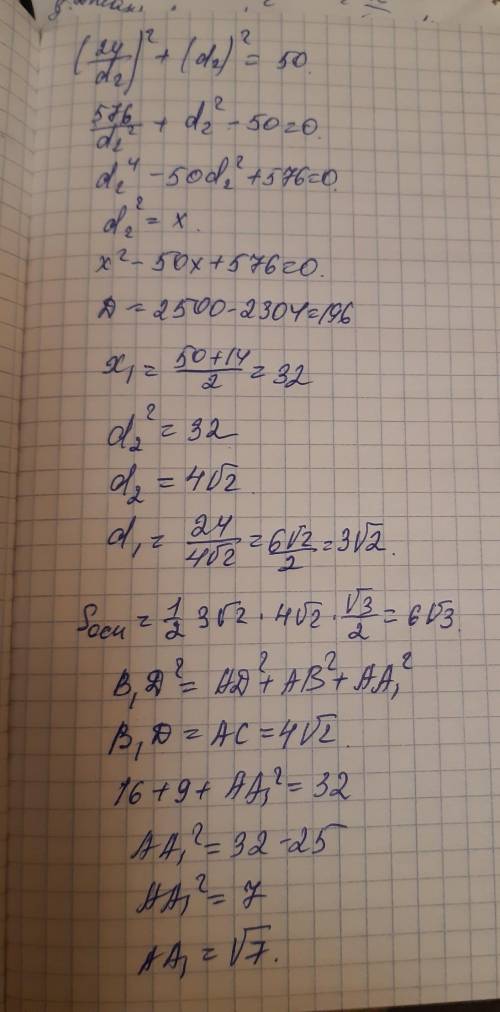 (24/d₂)² + (d₂)² = 50.
576/d₂² + d₂² - 50=0.
d₂⁴ - 50d₂² + 576=0.
d₂² = x.
x² - 50x + 576=0.
D = 2500 - 2304 = 196
x₁ = (50+14)/2 = 32
d₂² = 32
d₂ = 4√2.
d₁ = 24/(4√2) = 6√2/2 = 3√2.
Sосн = 1/2 3√2 · 4√2 · √3/2 = 6√3.
B₁D² = AD² + AB² + AA₁²
B₁D = AC = 4√2.
16 + 9 + AA₁² = 32
AA₁² = 32 - 25
AA₁² = 7
AA₁ = √7.